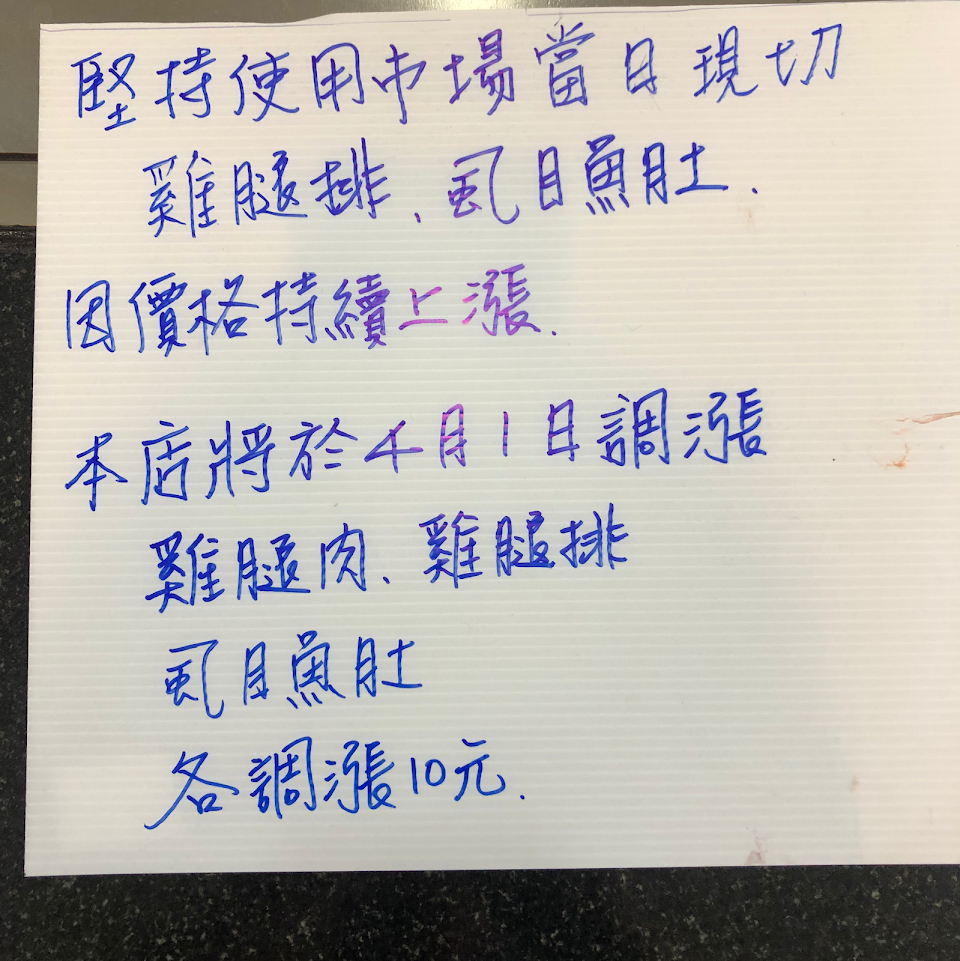 堅持使用市場當日現切
雞腿排、虱目魚肚.
因價格持續上漲.
本店將於4月1日調漲
雞腿肉、雞腿排
虱目魚肚
各調漲10元.